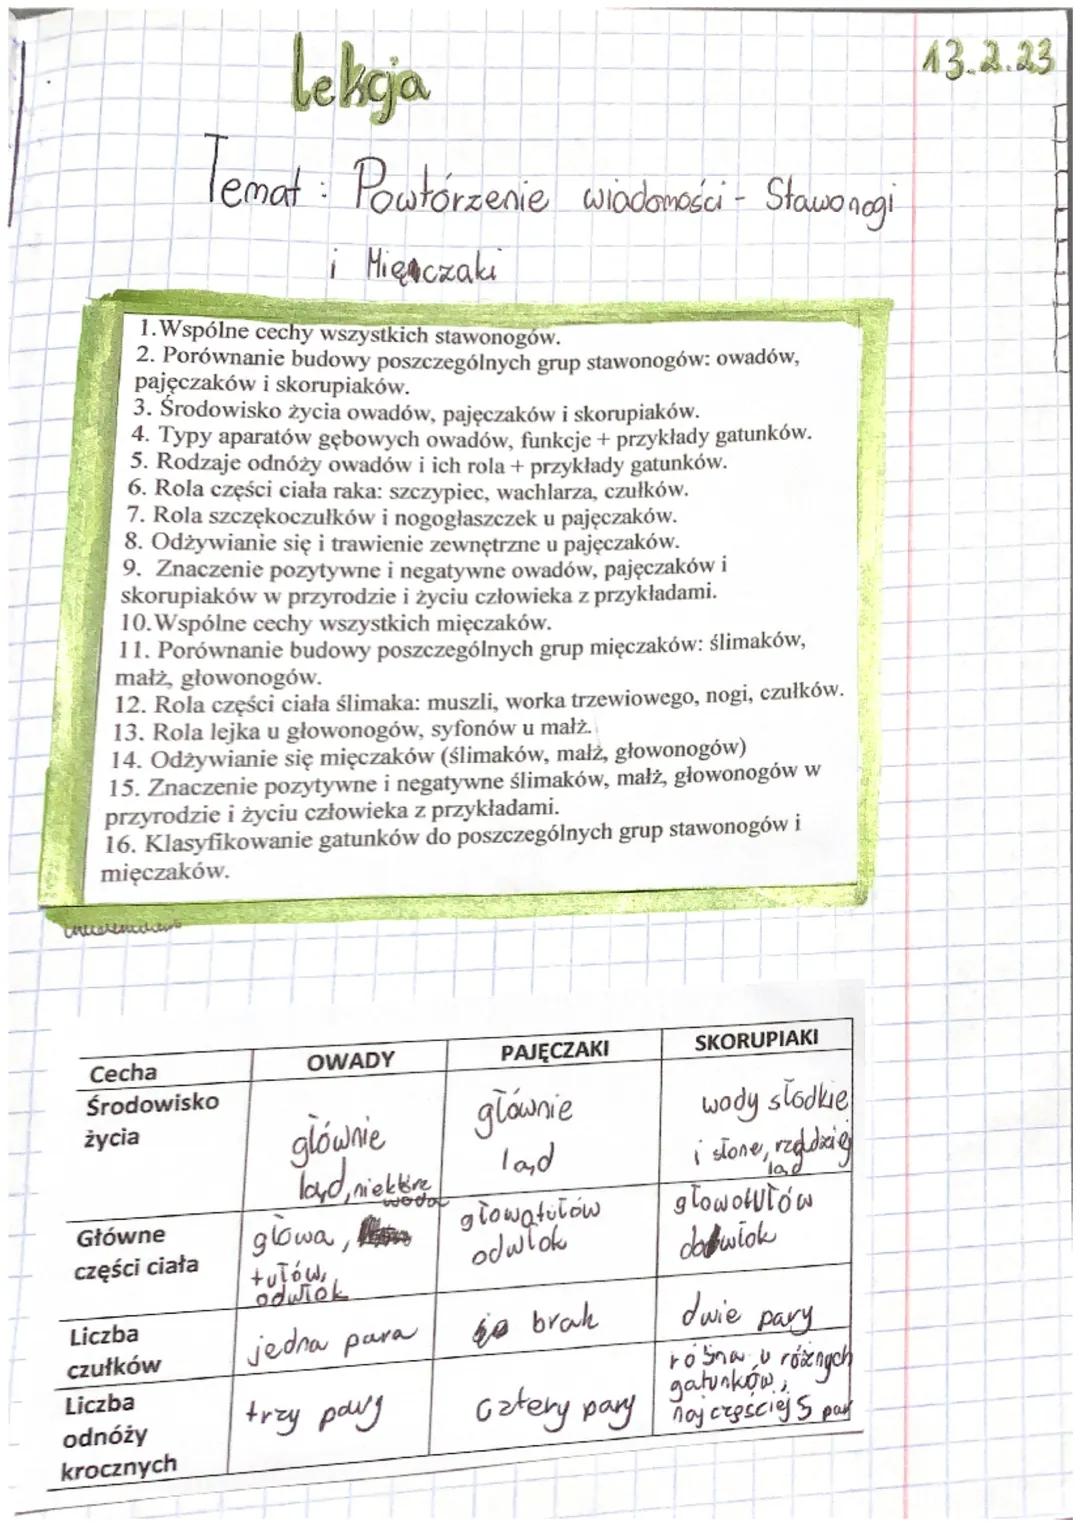 Lekcja
13.2.23
Temat: Powtórzenie wiadomości - Stawonogi
i Mięczaki
1.Wspólne cechy wszystkich stawonogów.
2. Porównanie budowy poszczególnych grup stawonogów: owadów,
pajęczaków i skorupiaków.
3. Środowisko życia owadów, pajęczaków i skorupiaków.
4. Typy aparatów gębowych owadów, funkcje + przykłady gatunków.
5. Rodzaje odnóży owadów i ich rola + przykłady gatunków.
6. Rola części ciała raka: szczypiec, wachlarza, czułków.
7. Rola szczękoczułków i nogogłaszczek u pajęczaków.
8. Odżywianie się i trawienie zewnętrzne u pajęczaków.
9. Znaczenie pozytywne i negatywne owadów, pajęczaków i
skorupiaków w przyrodzie i życiu człowieka z przykładami.
10.Wspólne cechy wszystkich mięczaków.
11. Porównanie budowy poszczególnych grup mięczaków: ślimaków,
małż, głowonogów.
12. Rola części ciała ślimaka: muszli, worka trzewiowego, nogi, czułków.
13. Rola lejka u głowonogów, syfonów u małż.
14. Odżywianie się mięczaków (ślimaków, małż, głowonogów)
15. Znaczenie pozytywne i negatywne ślimaków, małż, głowonogów w
przyrodzie i życiu człowieka z przykładami.
16. Klasyfikowanie gatunków do poszczególnych grup stawonogów i
mięczaków.
Cecha OWADY PAJĘCZAKI SKORUPIAKI
Środowisko
życia
głównie
ląd, niektóre
woda
głównie
ląd
wody słodkie
i słone, rzadziej
ląd
Główne
części ciała
głowa,
tułów,
odwłok
głowotułów
odwłok
głowotułów
odwłok
Liczba
czułków
jedna para
brak
dwie pary
Liczba
odnóży
krocznych
trzy pary
cztery pary
różna u różnych
gatunków,
najczęściej 5 par